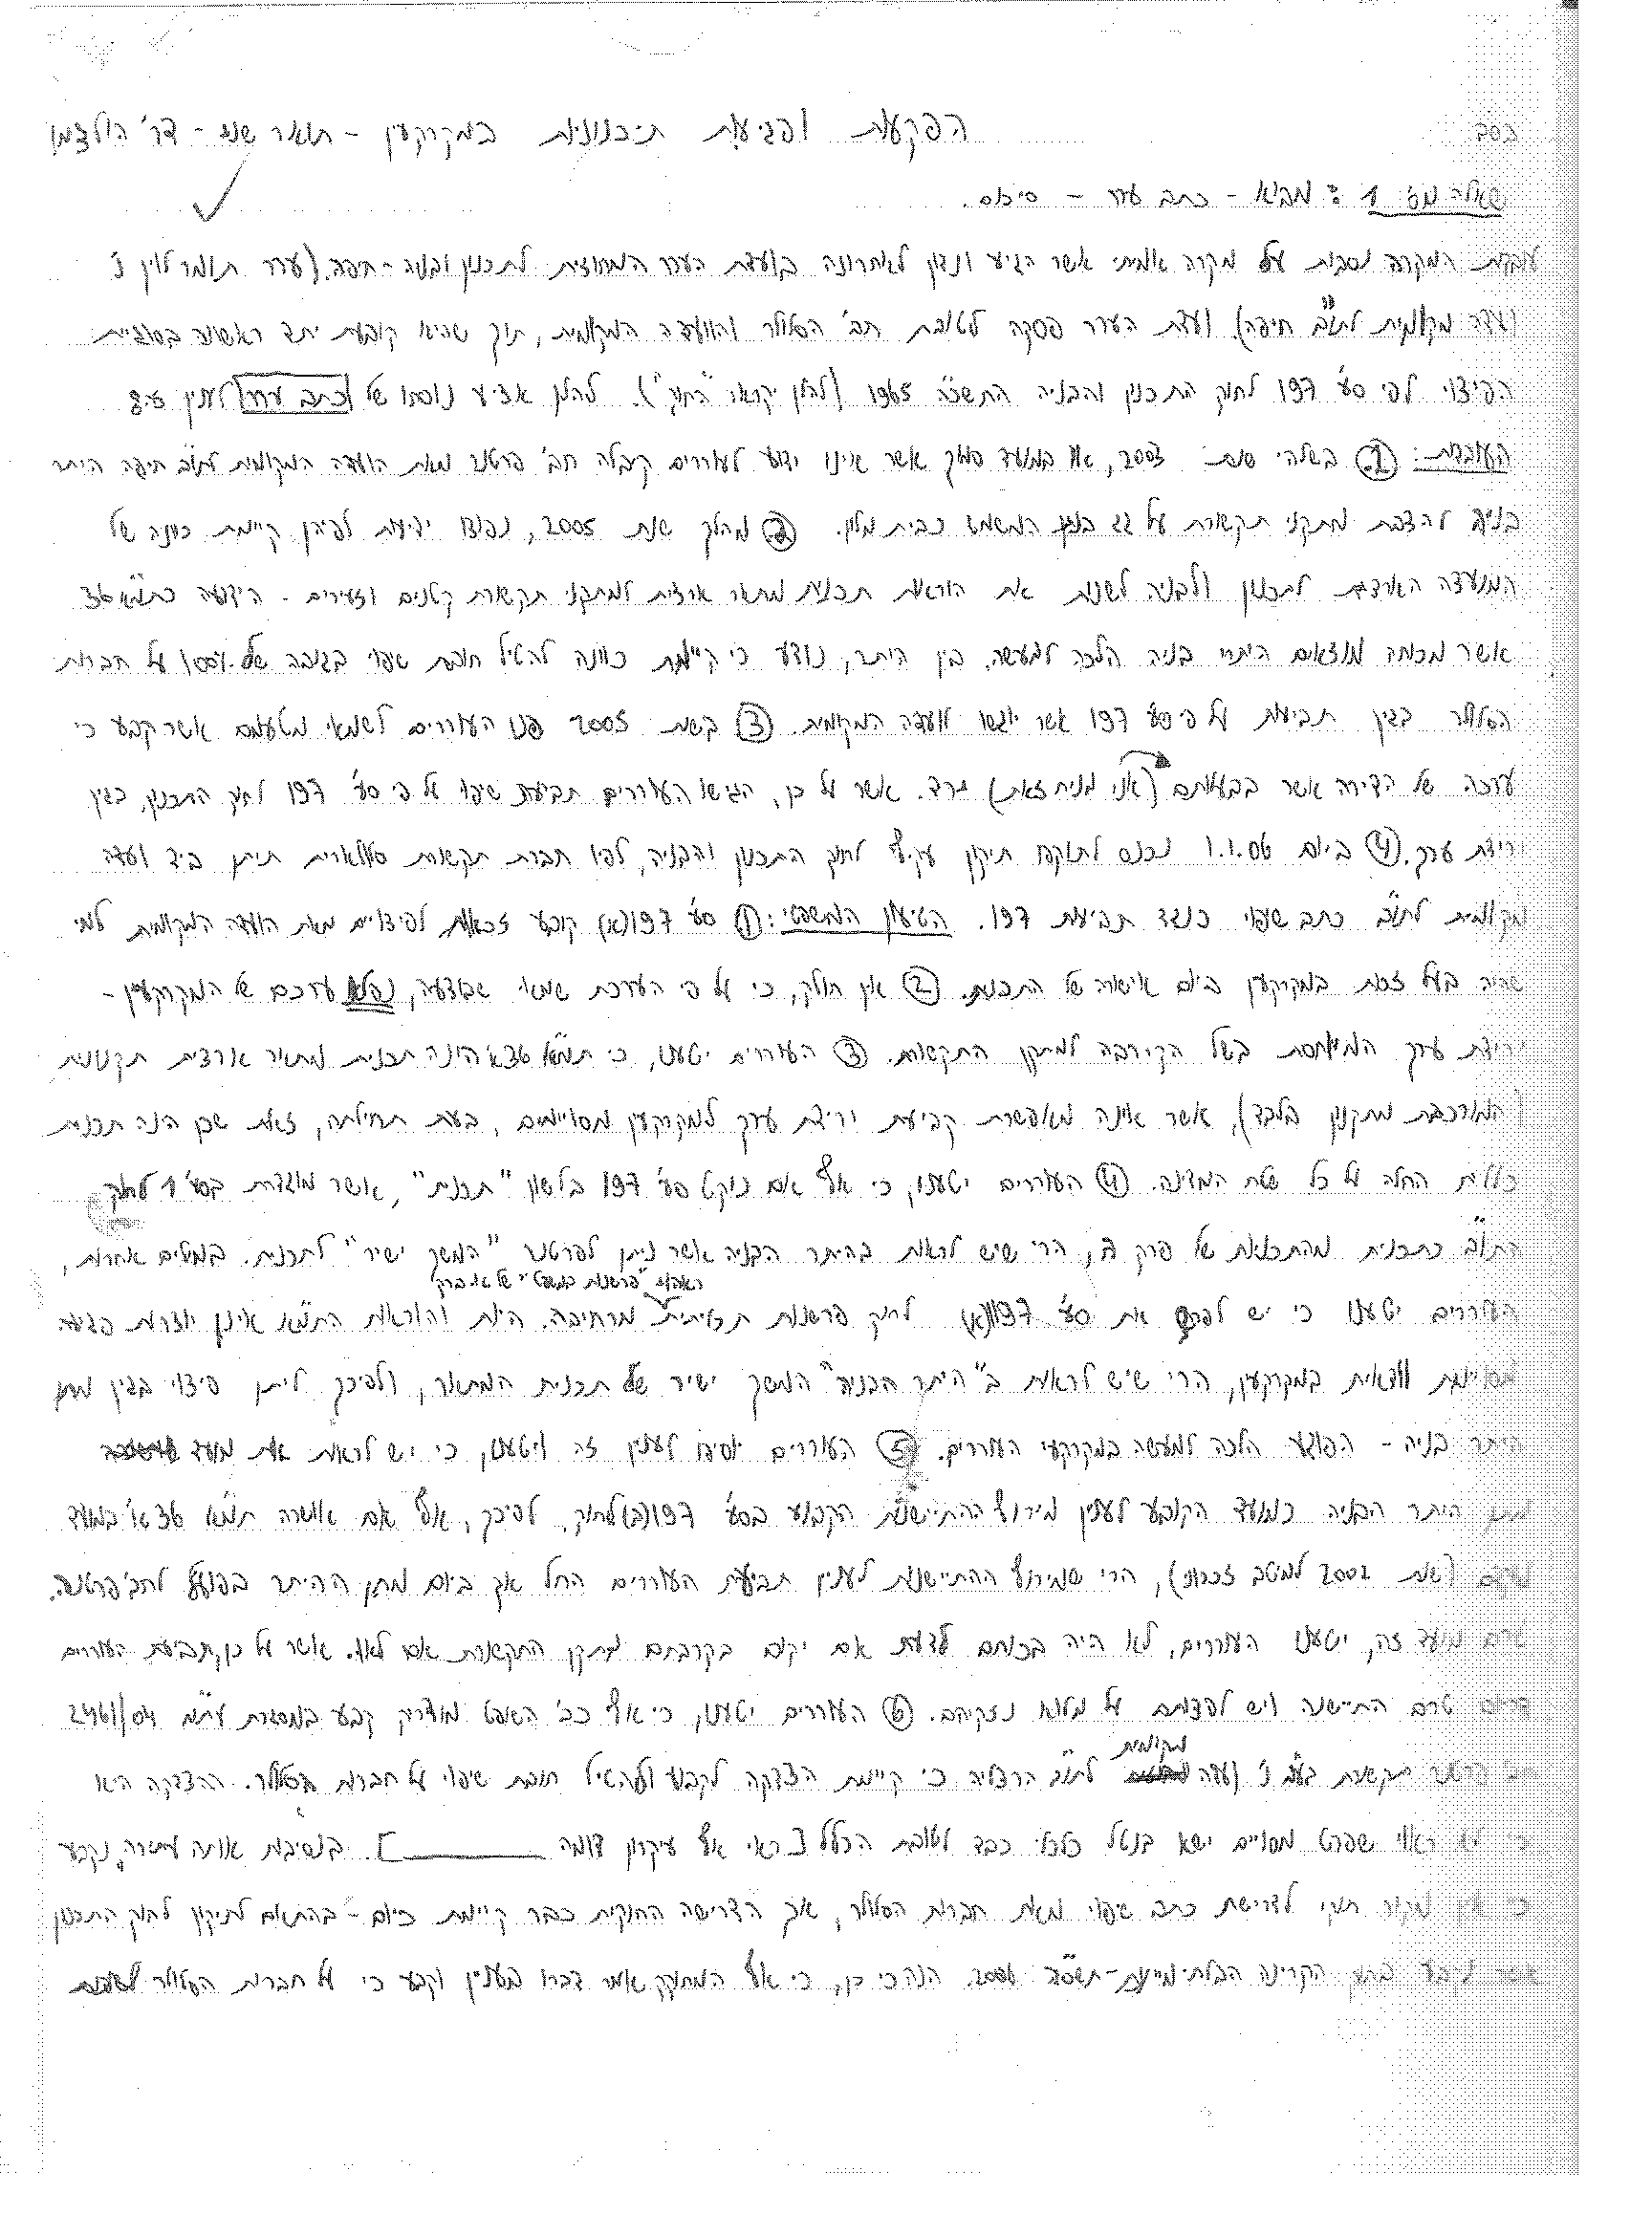 הפקעות ופגיעות תכנוניות במקרקעין - תואר שני - דר' הולצמן
שאלה מס' 1: מבוא - כתב ערר - סיכום.
עובדות המקרה נסבות על מקרה אמיתי אשר הגיע ונדון לאחרונה בועדת הערר המחוזית לתכנון ובניה - חיפה. (ערר תומר לוין נ'
ועדה מקומית לתו"ב חיפה). ועדת הערר פסקה לטובת חב' הסלולר והוועדה המקומית, תוך שהיא קובעת יתד ראשונה בסוגיית
הפיצוי לפי סע' 197 לחוק התכנון והבניה התשכ"ה 1965 (להלן יקרא: "החוק"). להלן אציע נוסחו של כתב ערר לענין זה:
העובדות: (1) בשלהי שנת 2003, או במועד סמוך אשר אינו ידוע לעוררים קיבלה חב' פרטנר מאת הועדה המקומית לתו"ב חיפה היתר
בניה להצבת מתקני תקשורת על גג בנין המשמש כבית מלון. (2) מהלך שנת 2005, נפוצו ידיעות לפיהן קיימת כוונה של
המועצה הארצית לתכנון ולבניה לשנות את הוראות תכנית מתאר ארצית למתקני תקשורת קטנים וזעירים - הידועה כתמ"א 36
אשר מכוחה מוצאים היתרי בניה הלכה למעשה. בין היתר, נודע כי קיימת כוונה להטיל חובת שיפוי בגובה של 100% על חברות
הסלולר בגין תביעות על פי סע' 197 אשר יוגשו לועדה המקומית. (3) בשנת 2005 פנו העוררים לשמאי מטעמם אשר קבע כי
ערכה של הדירה אשר בבעלותם (אני מניח זאת) ירד. אשר על כן, הגישו העוררים תביעת שיפוי על פי סע' 197 לחוק התכנון, בגין
ירידת ערך. (4) ביום 1.1.06 נכנס לתוקפו תיקון עקיף לחוק התכנון והבניה, לפיו חברת תקשורת סלולארית תיתן ביד ועדה
מקומית לתו"ב כתב שיפוי כנגד תביעות 197. הטיעון המשפטי: (1) סע' 197(א) קובע זכאות לפיצויים מאת הועדה המקומית למי
שהיה בעל זכות במקרקעין ביום אישורה של התכנית. (2) אין חולק, כי על פי הערכת שמאי שבוצעה, נפגע ערכם של המקרקעין -
ירידת ערך המיוחסת בשל הקירבה למיתקן התקשורת. (3) העוררים יטענו, כי תמ"א 36א' הינה תכנית מתאר ארצית תקנונית
(המורכבת מתקנון בלבד), אשר אינה מאפשרת קביעת ירידת ערך למקרקעין מסויימים, בעת תחילתה, זאת שכן הנה תכנית
כללית החלה על כל שטח המדינה. (4) העוררים יטענו, כי אף אם נוקט סע' 197 בלשון "תכנית", אשר מוגדרת בסע' 1 לחוק
התו"ב כתכנית מהתכניות של פרק ג', הרי שיש לראות בהיתר הבניה אשר ניתן לפרטנר "המשך ישיר" לתכנית. במילים אחרות,
ראה: "פרשנות במשפט" של א. ברק
העוררים יטענו כי יש לפרש את סע' 197(א) לחוק פרשנות תכליתית מרחיבה. היות והוראות התמ"א אינן יוצרות פגיעה
מסויימת וודאית במקרקעין, הרי שיש לראות ב"היתר הבניה" המשך ישיר של תכנית המתאר, ולפיכך ליתן פיצוי בגין מתן
היתר בניה - הפוגע הלכה למעשה במקרקעי העוררים. (5) העוררים יוסיפו לענין זה ויטענו, כי יש לראות את מועד
מתן היתר הבניה כמועד הקובע לענין מירוץ ההתיישנות הקבוע בסע' 197(ב) לחוק. לפיכך, אף אם אושרה תמ"א 36א' במועד
מוקדם (שנת 2002 למיטב זכרוני), הרי שמירוץ ההתיישנות לענין תביעת העוררים החל אך ביום מתן ההיתר בפועל לחב' פרטנר.
טרם מועד זה, יטענו העוררים, לא היה בכוחם לדעת אם יוקם בקרבתם מיתקן התקשורת אם לאו. אשר על כן, תביעת העוררים
דהיום טרם התיישנה ויש לפצותם על מלוא נזקיהם. (6) העוררים יטענו, כי אף כב' השופט מודריק קבע במסגרת עת"מ 2461/04
חב' פרטנר תקשורת בע"מ נ' ועדה מקומית לתו"ב הרצליה כי קיימת הצדקה לקבוע ולהטיל חובת שיפוי על חברות הסלולר. ההצדקה היא
כי לא ראוי שפרט מסויים ישא בנטל כלכלי כבד לטובת הכלל [ראי אף עיקרון דומה ________]. בנסיבות אותה עתירה, נקבע
כי אין מקור חוקי לדרישת כתב שיפוי מאת חברות הסלולר, אך הדרישה החוקית כבר קיימת כיום - בהתאם לתיקון לחוק התכנון
אשר נקבע בחוק הקרינה הבלתי מייננת - תשס"ו 2006. הנה כי כן, כי אף המחוקק אמר דברו בענין וקבע כי על חברות הסלולר